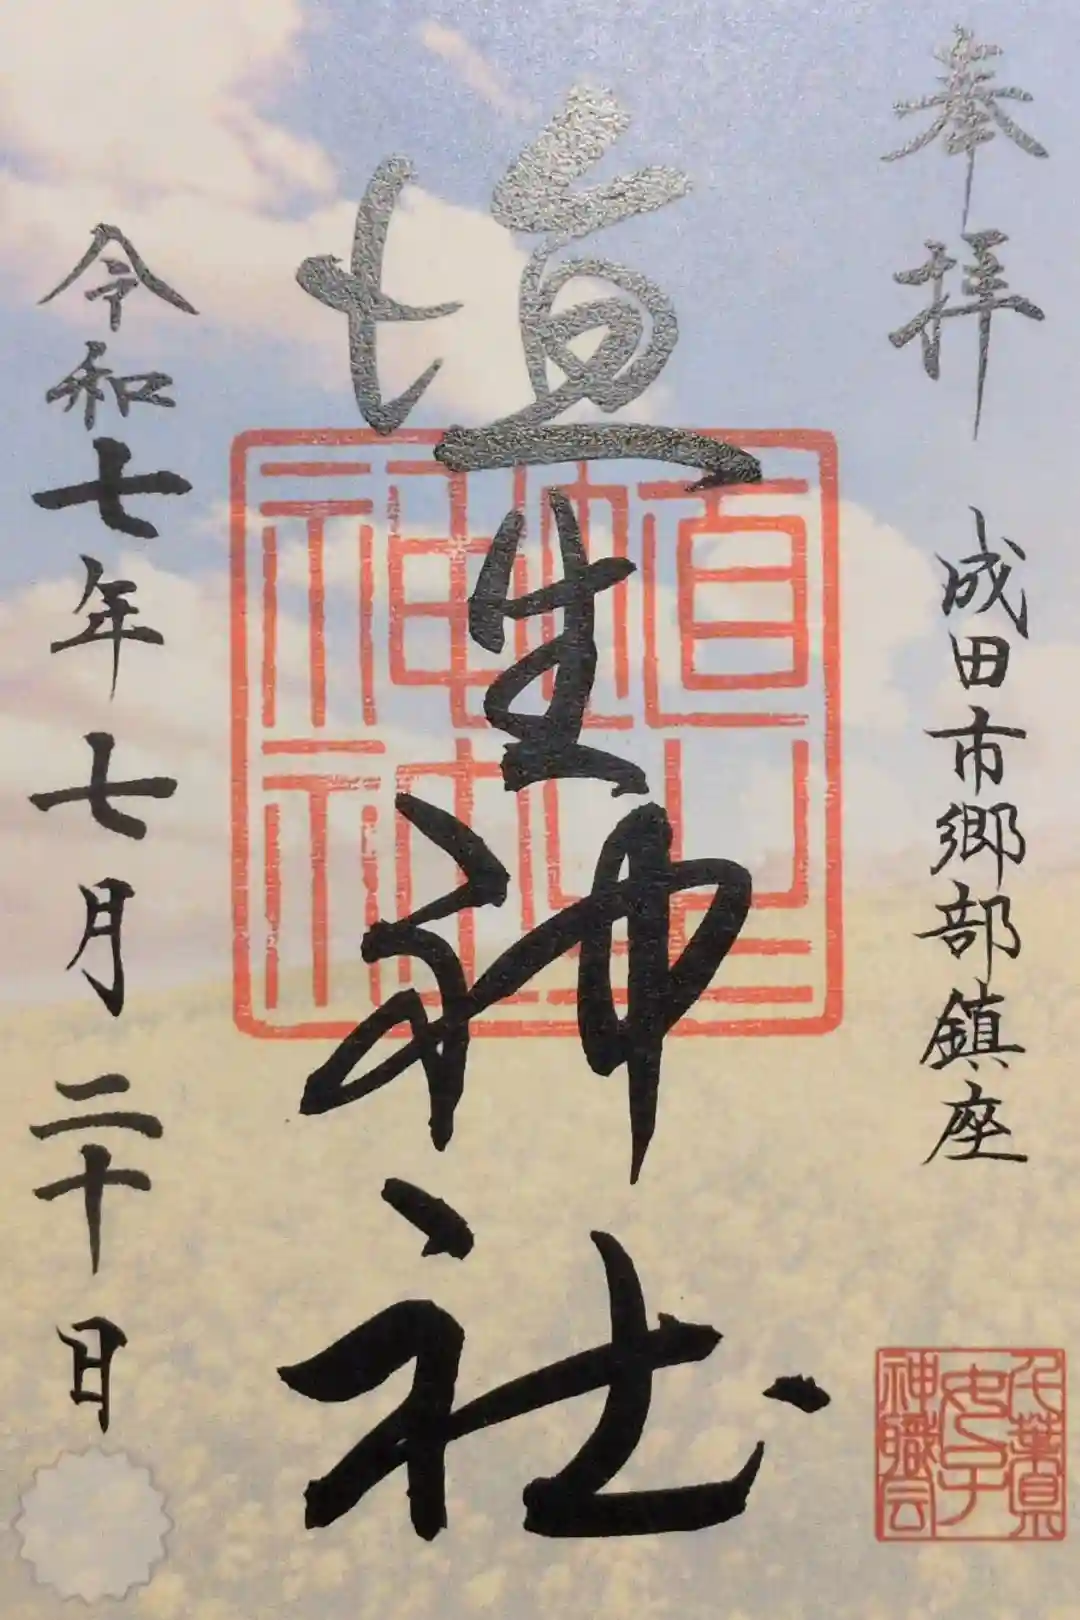 奉拝
成田市郷部鎮座
埴生神社
埴生
神社
令和七年七月二十日
千葉県
女子
神職会